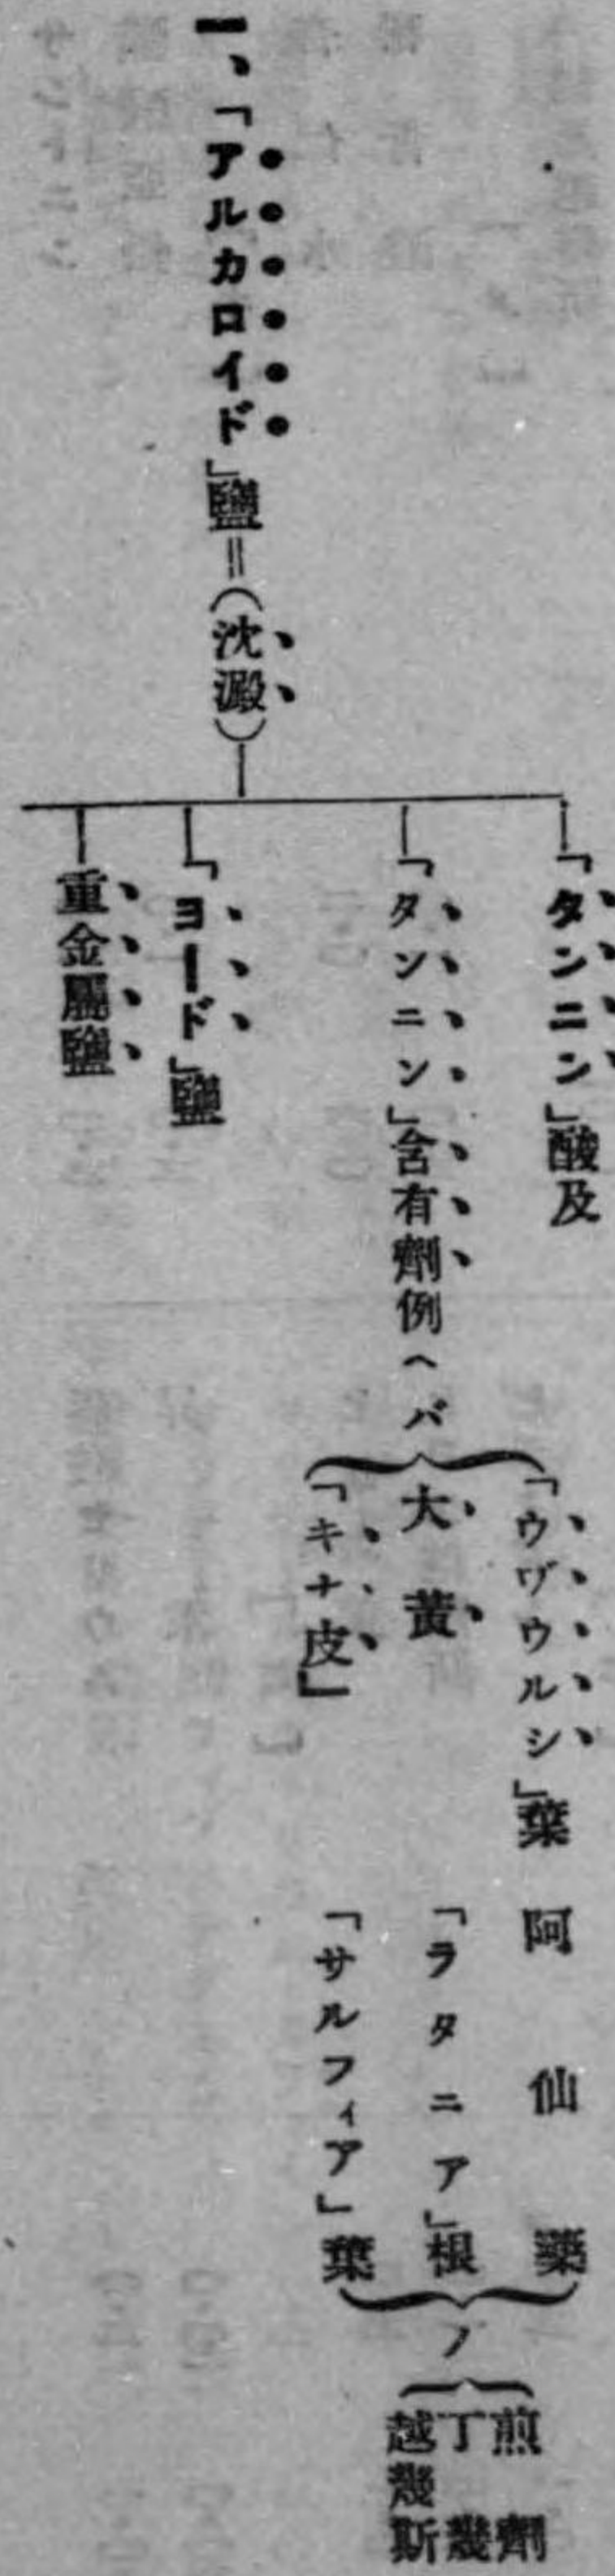 一、「アルカロイド」鹽＝（沈澱）
「タンニン」酸及
「タンニン」含有劑例ヘバ
「ウヴウルシ」葉
大黃
「キナ皮」
阿仙藥
「ラタニア」根
「サルフィア」葉
ノ
煎劑
丁幾
越幾斯
「ヨード」鹽
重金屬鹽